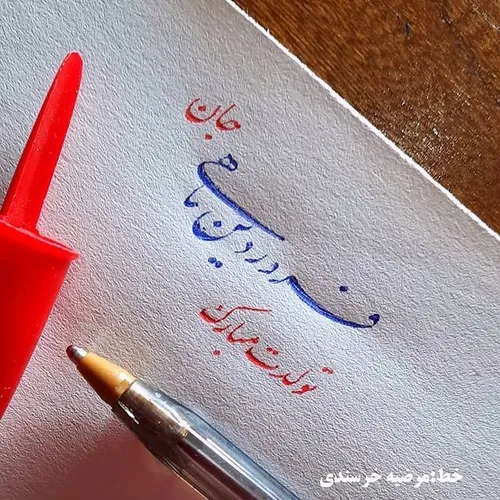 فروردین ماهی
جان
تولدت مبارک
خط:مرضیه خرسندی